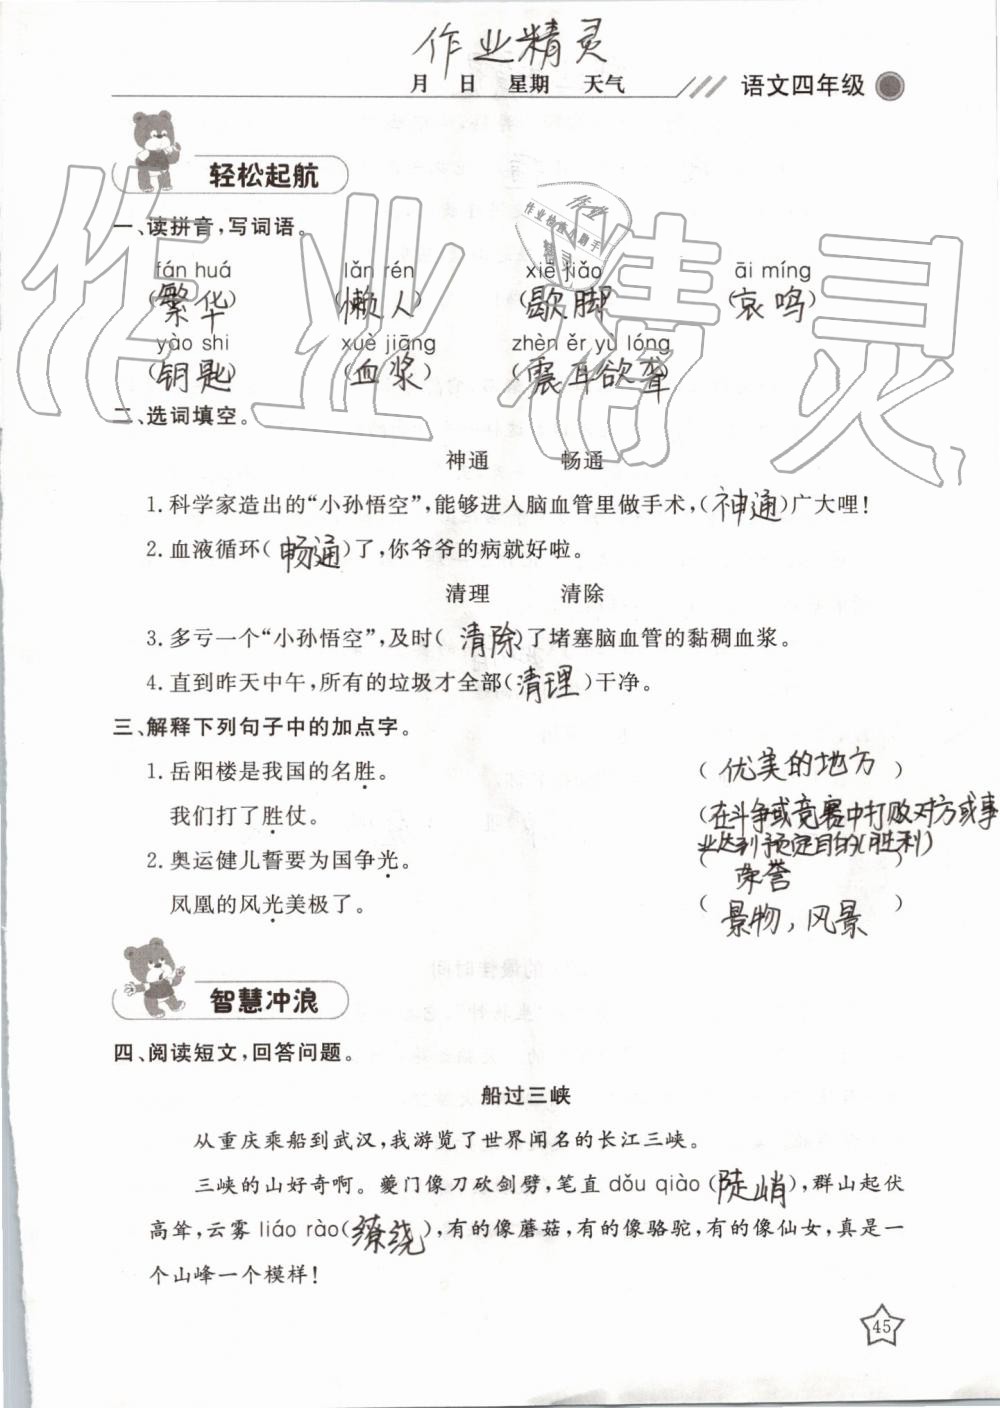 作业精灵
月 日 星期 天气
语文四年级
轻松起航
一、读拼音,写词语。
fán huá lǎn rén xiē jiǎo āi míng
(繁华) (懒人) (歇脚 (哀鸣)
yào shi xuè jiāng zhèn ěr yù lóng
(钥匙) (血浆) (震耳欲聋
二、选词填空。
神通 畅通
1. 科学家造出的“小孙悟空”,能够进入脑血管里做手术,(神通)广大哩!
2. 血液循环(畅通)了,你爷爷的病就好啦。
清理 清除
3. 多亏一个“小孙悟空”,及时(清除)了堵塞脑血管的黏稠血浆。
4. 直到昨天中午,所有的垃圾才全部(清理)干净。
三、解释下列句子中的加点字。
1. 岳阳楼是我国的名胜。 (优美的地方)
我们打了胜仗。 (在斗争或竞赛中打败对方或事
业达到预定目的(胜利)
2. 奥运健儿誓要为国争光。 (荣誉)
凤凰的风光美极了。 (景物,风景)
智慧冲浪
四、阅读短文,回答问题。
船过三峡
从重庆乘船到武汉,我游览了世界闻名的长江三峡。
三峡的山好奇啊。夔门像刀砍剑劈,笔直 dǒu qiào (陡峭),群山起伏
高耸,云雾 liáo rào(缭绕),有的像蘑菇,有的像骆驼,有的像仙女,真是一
个山峰一个模样!
45
作业精灵
作业
作业检查小助手
精灵